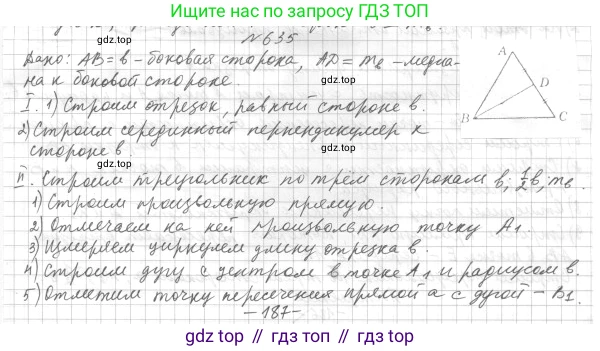 Ищите нас по запросу ГДЗ ТОП
№635
gdz.top
Дано: AB = b - боковая сторона, AD = mb - медиа-
на к боковой стороне.
A
D
B
C
I. 1) Строим отрезок, равный стороне b.
gdz.top
2) Строим серединный перпендикуляр к
стороне b.
gdz.top
II. Строим треугольник по трём сторонам b; 1/2 b; mb.
1) Строим произвольную прямую.
gdz.top
2) Отмечаем на ней произвольную точку A1.
3) Измеряем циркулем длину отрезка b.
gdz.top
4) Строим дугу с центром в точке A1 и радиусом b.
5) Отметим точку пересечения прямой a с дугой - B1.
-187-
gdz.top // gdz.top // gdz.top // gdz.top